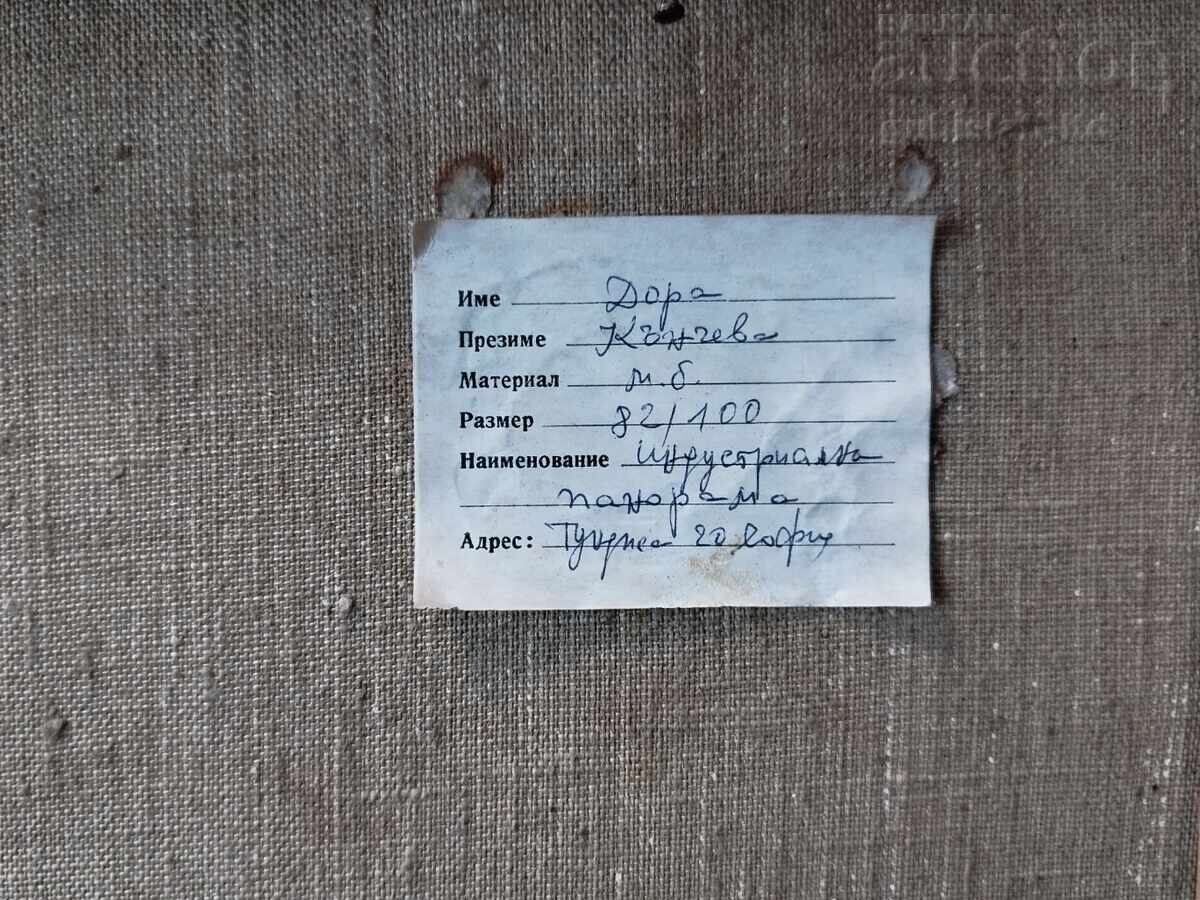 Име Дора
Презиме Кънчева
Материал м.б.
Размер 82/100
Наименование Индустриална
панорама
Адрес: Тунджа 20 София